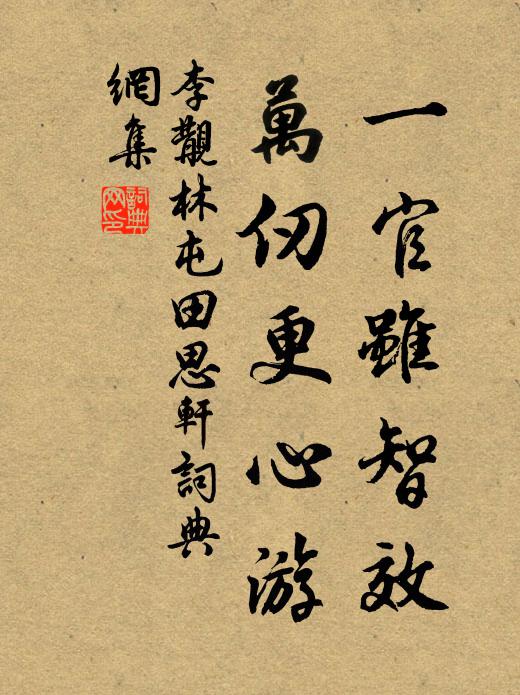 一官雖智效
萬仞更心游
李覯林屯田思軒詞典
網集
詞典
网印